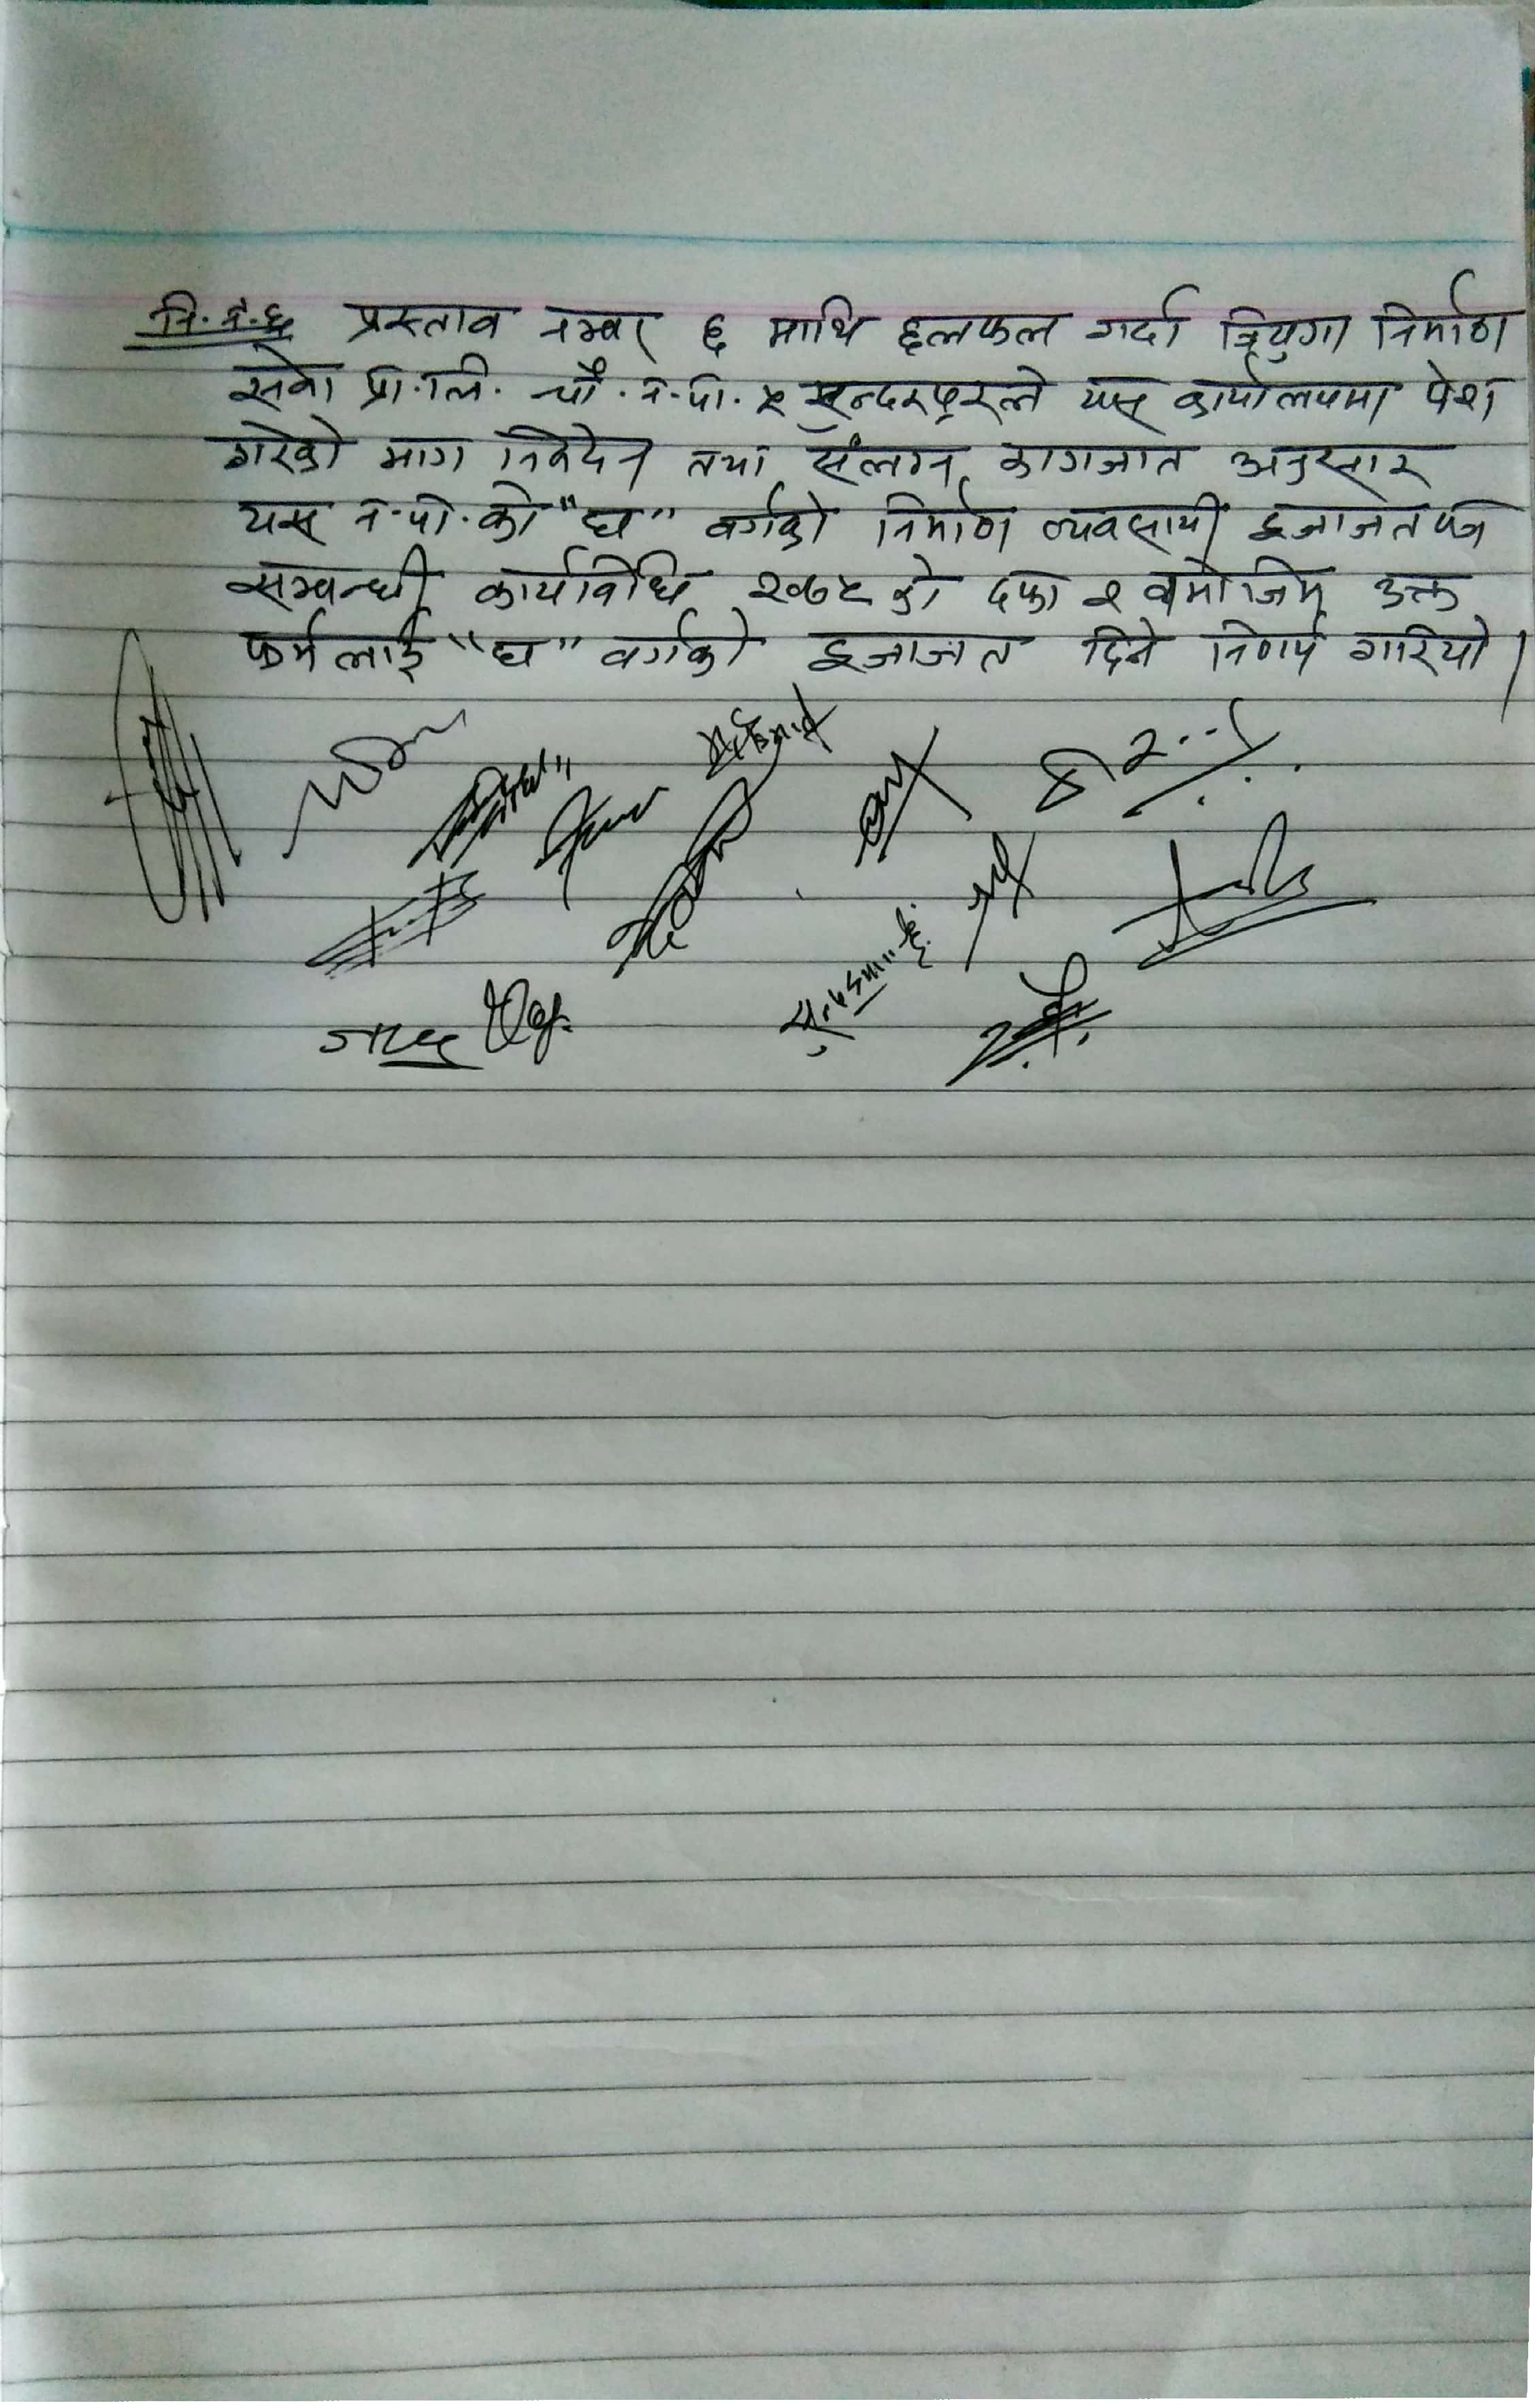 नि.नं.६ प्रस्ताव नम्वर ६ माथि छलफल गर्दा त्रियुगा निर्माण
सेवा प्रा.लि. चौ.न.पा. ५ सुन्दरपुरले यस कार्यालयमा पेश
गरेको माग निवेदन तथा संलग्न कागजात अनुसार
यस न.पा.को "घ" वर्गको निर्माण व्यवसायी इजाजतपत्र
सम्वन्धी कार्यविधि २०७५ को दफा २ वमोजिम उक्त
फर्मलाई "घ" वर्गको इजाजत दिने निर्णय गरियो।